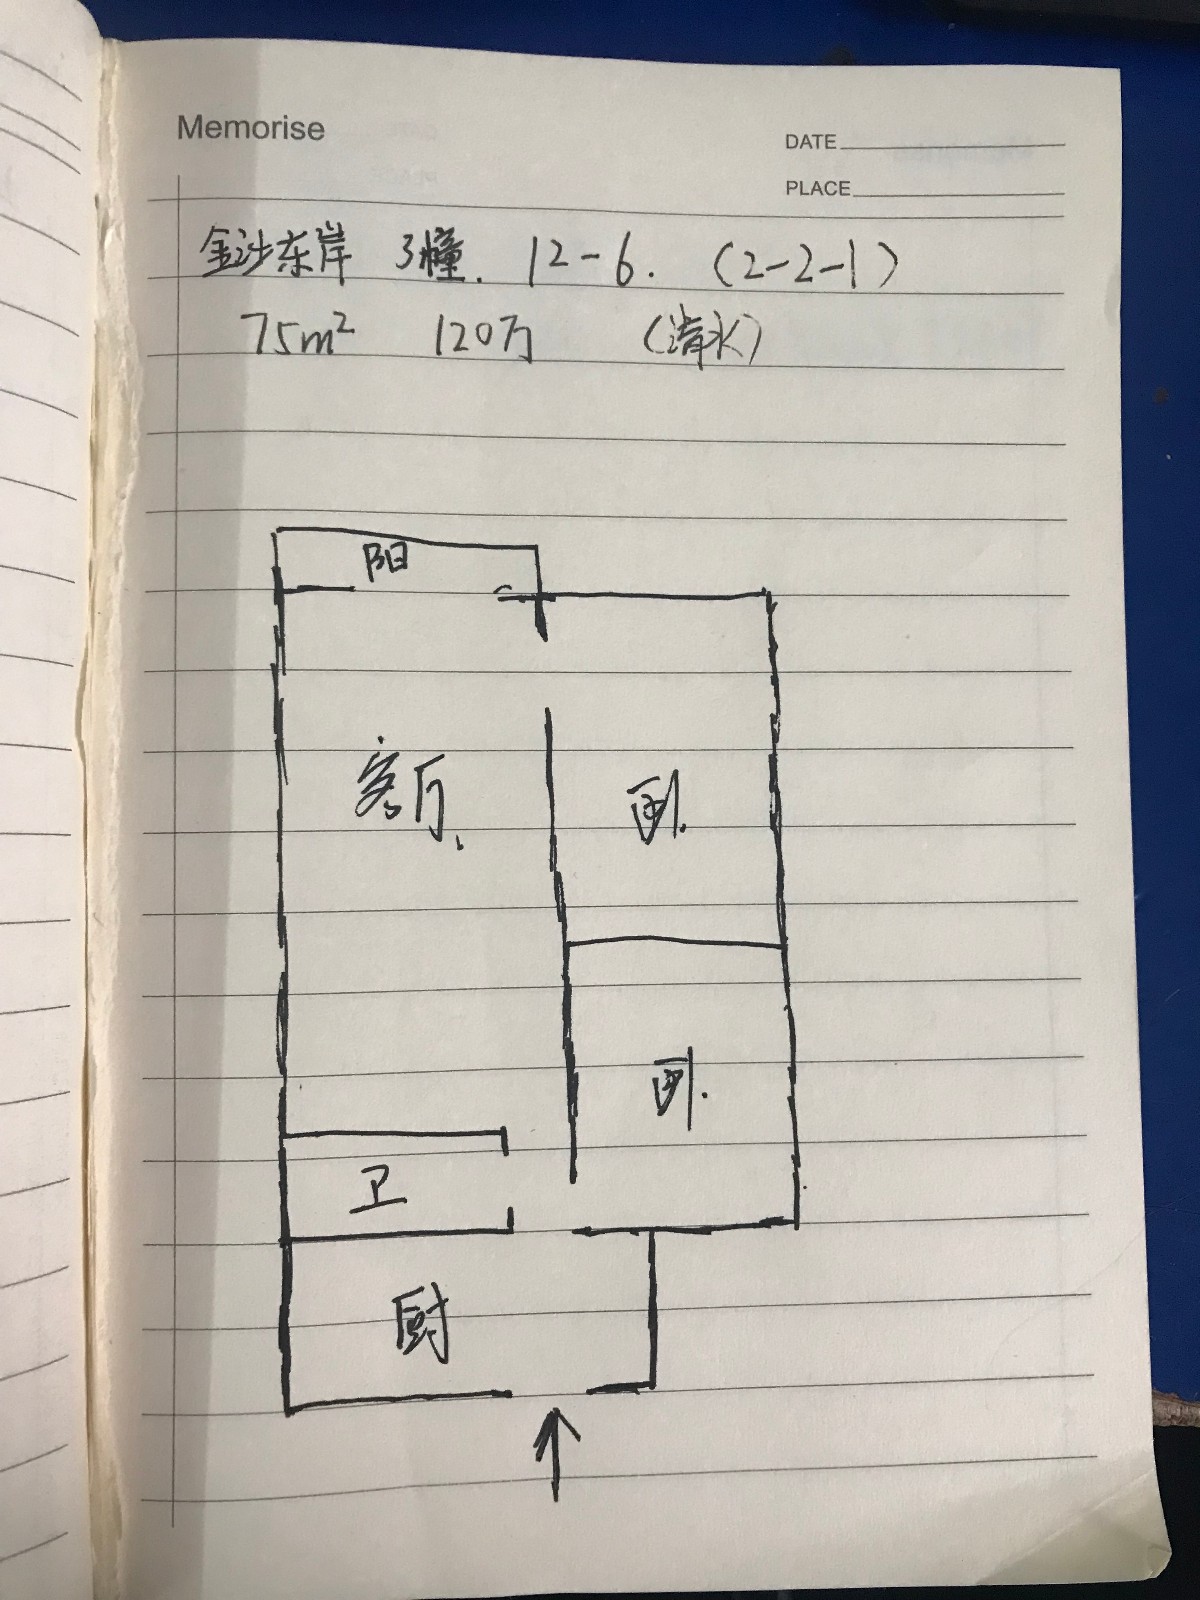 Memorise
DATE
PLACE
金沙东岸 3幢. 12-6. (2-2-1)
75m² 120万 (清水)
阳
客厅、
卧.
卧.
卫
厨